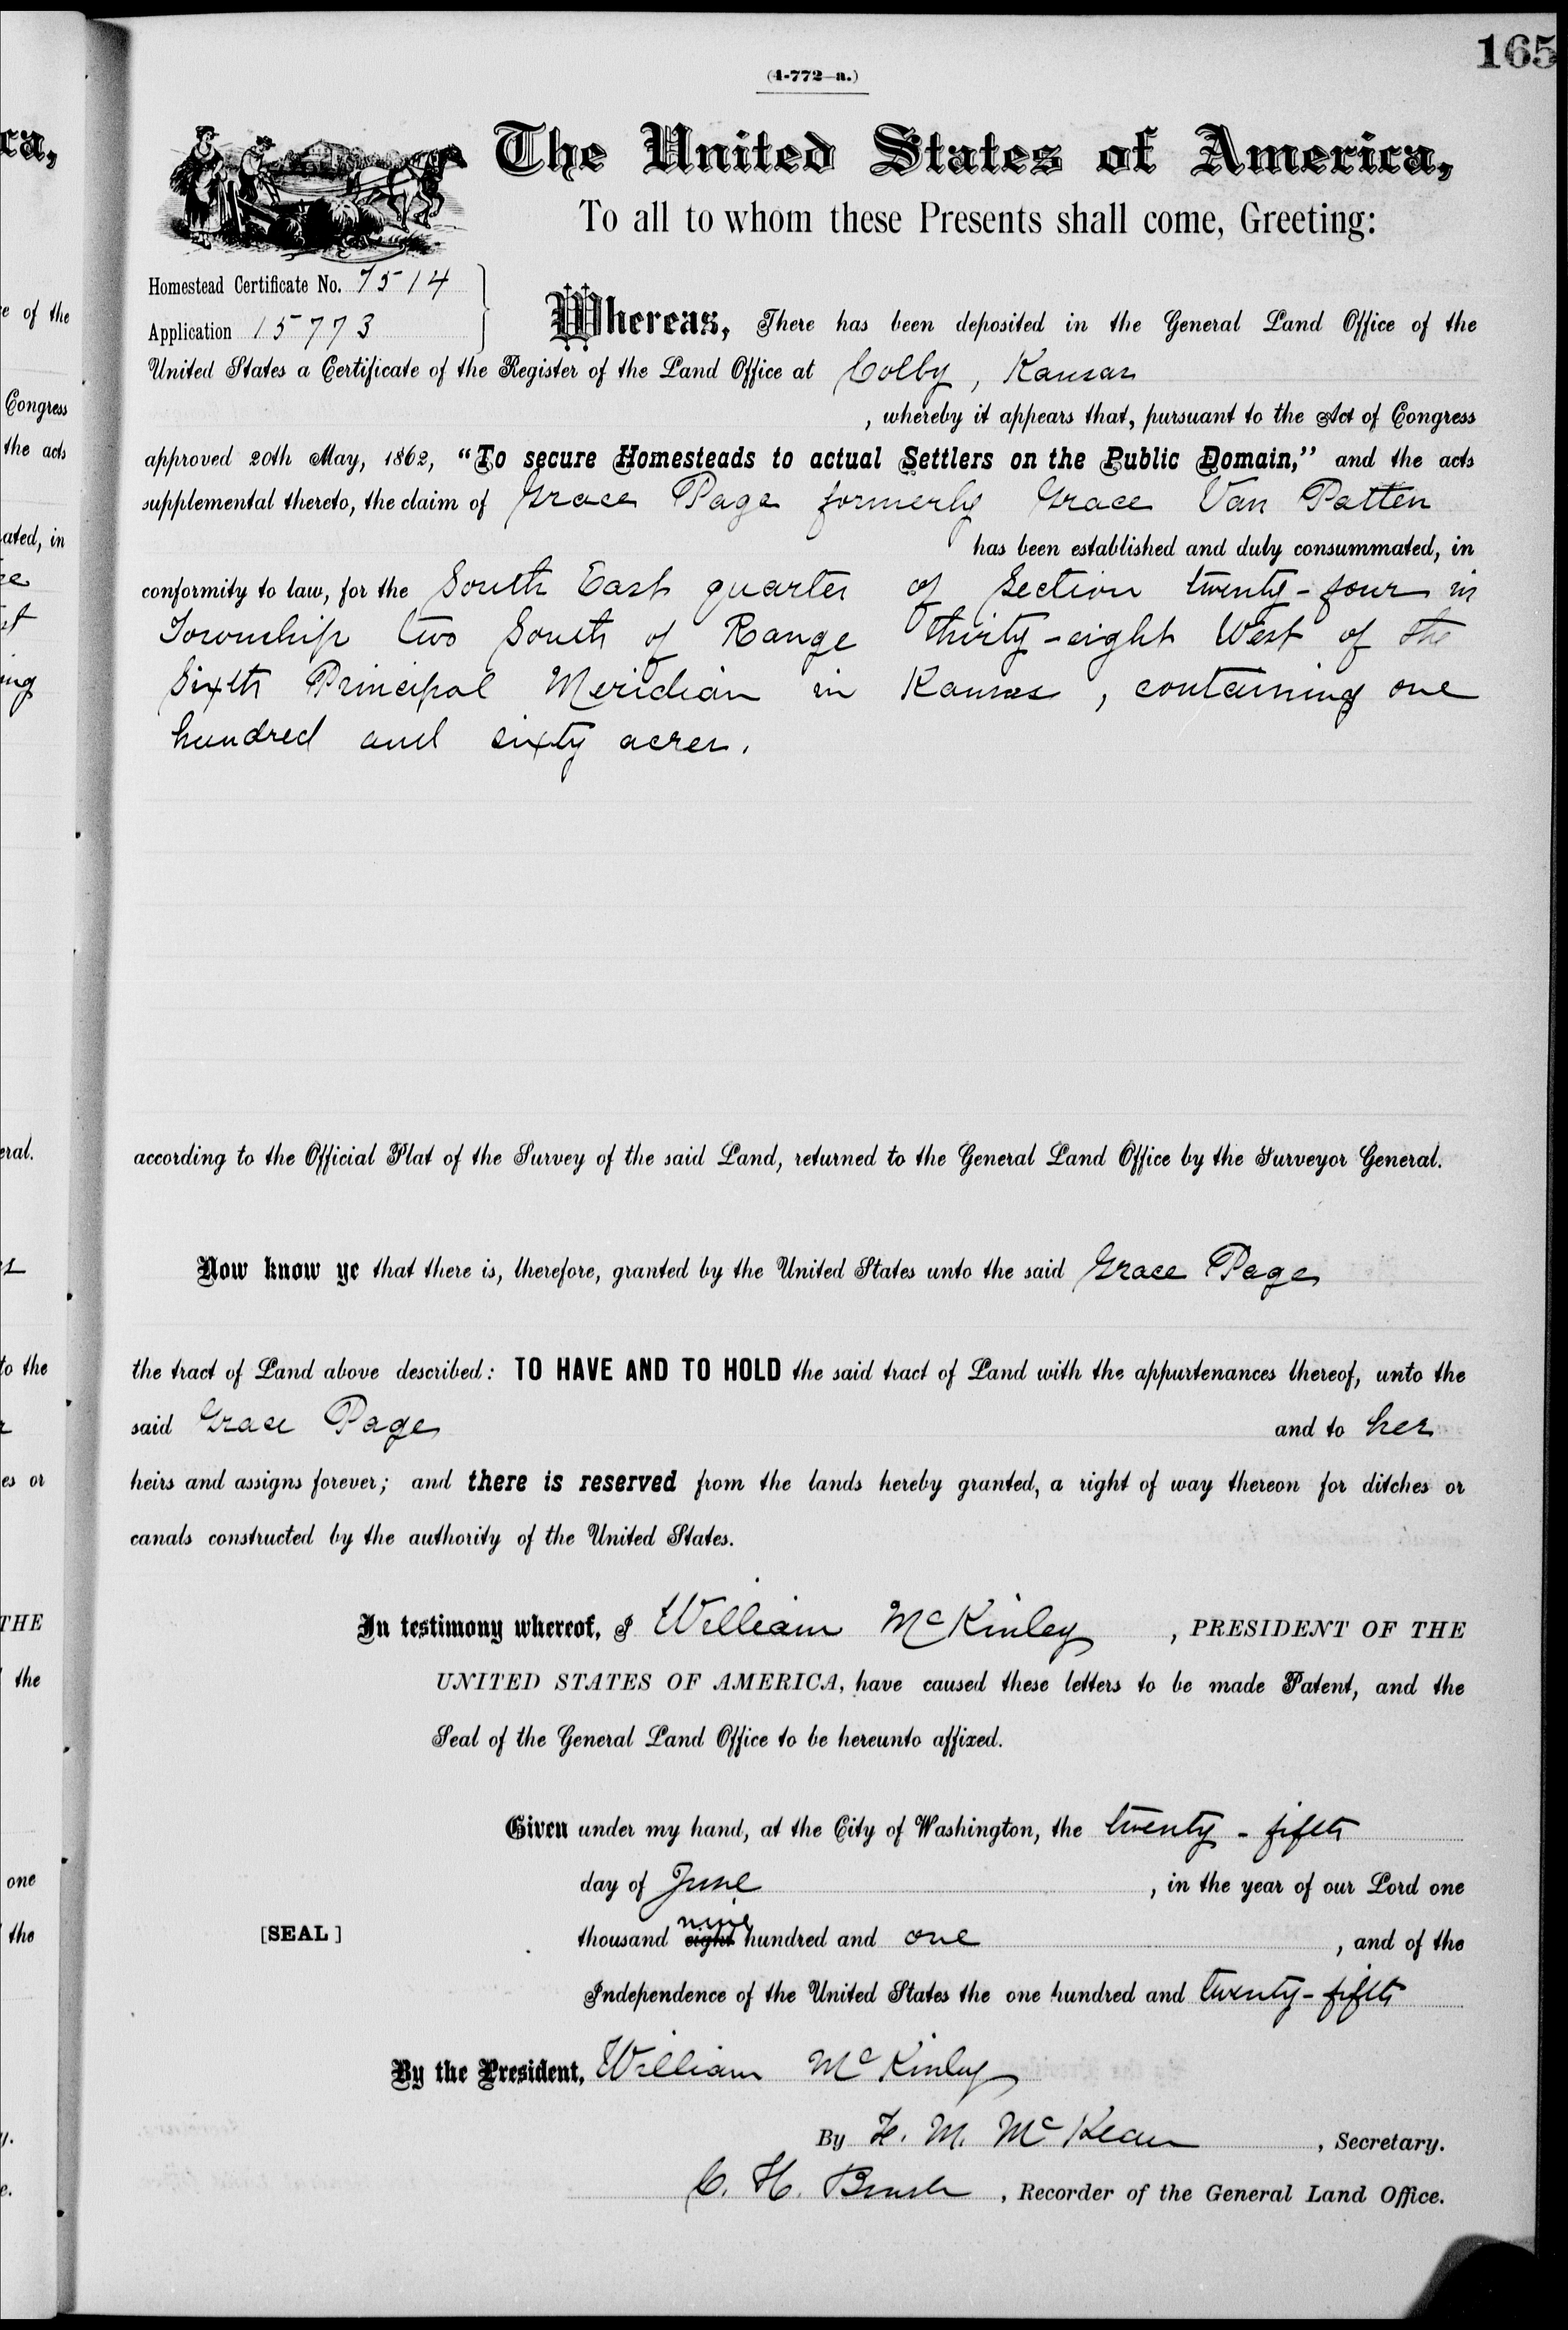 165
(4-772—a.)
The United States of America,
To all to whom these Presents shall come, Greeting:
Homestead Certificate No. 7514
Application 15773
Whereas, There has been deposited in the General Land Office of the
United States a Certificate of the Register of the Land Office at Colby, Kansas
, whereby it appears that, pursuant to the Act of Congress
approved 20th May, 1862, “To secure Homesteads to actual Settlers on the Public Domain,” and the acts
supplemental thereto, the claim of Grace Page formerly Grace Van Patten
has been established and duly consummated, in
conformity to law, for the South East quarter of Section twenty-four in
Township two South of Range thirty-eight West of the
Sixth Principal Meridian in Kansas, containing one
hundred and sixty acres.
according to the Official Plat of the Survey of the said Land, returned to the General Land Office by the Surveyor General.
Now know ye that there is, therefore, granted by the United States unto the said Grace Page
the tract of Land above described: TO HAVE AND TO HOLD the said tract of Land with the appurtenances thereof, unto the
said Grace Page and to her
heirs and assigns forever; and there is reserved from the lands hereby granted, a right of way thereon for ditches or
canals constructed by the authority of the United States.
In testimony whereof, I William McKinley, PRESIDENT OF THE
UNITED STATES OF AMERICA, have caused these letters to be made Patent, and the
Seal of the General Land Office to be hereunto affixed.
Given under my hand, at the City of Washington, the twenty-fifth
day of June, in the year of our Lord one
[SEAL] thousand eight nine hundred and one, and of the
Independence of the United States the one hundred and twenty-fifth
By the President, William McKinley
By F. M. McKean, Secretary.
C. H. Brush, Recorder of the General Land Office.
ca,
e of the
Congress
the acts
ated, in
ing
eral.
to the
es or
THE
the
one
the